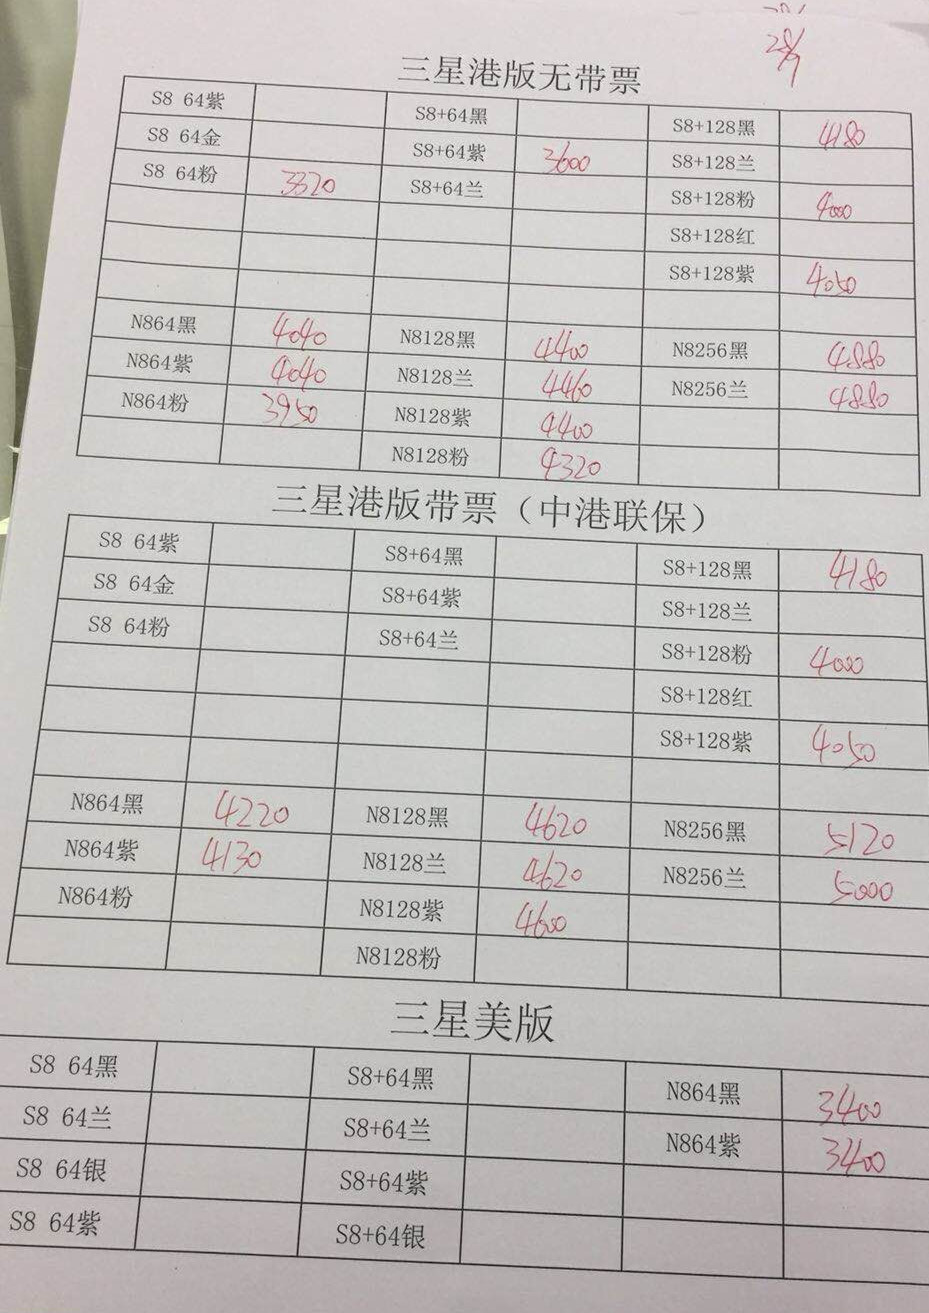 28/7
三星港版无带票
S8 64紫 S8+64黑 S8+128黑 4180
S8 64金 S8+64紫 3600 S8+128兰
S8 64粉 3320 S8+64兰 S8+128粉 4000
S8+128红
S8+128紫 4050
N864黑 4040 N8128黑 4400 N8256黑 4880
N864紫 4040 N8128兰 4460 N8256兰 4880
N864粉 3950 N8128紫 4400
N8128粉 4320
三星港版带票（中港联保）
S8 64紫 S8+64黑 S8+128黑 4180
S8 64金 S8+64紫 S8+128兰
S8 64粉 S8+64兰 S8+128粉 4000
S8+128红
S8+128紫 4050
N864黑 4220 N8128黑 4620 N8256黑 5120
N864紫 4130 N8128兰 4620 N8256兰 5000
N864粉 N8128紫 4600
N8128粉
三星美版
S8 64黑 S8+64黑 N864黑 3400
S8 64兰 S8+64兰 N864紫 3400
S8 64银 S8+64紫
S8 64紫 S8+64银